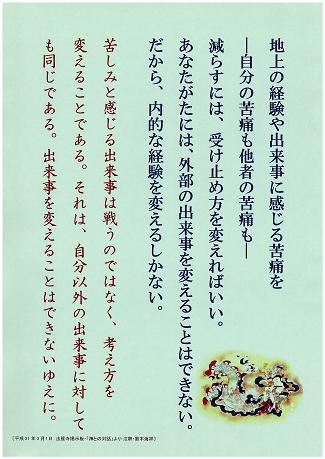 地上の経験や出来事に感じる苦痛を
―自分の苦痛も他者の苦痛も―
減らすには、受け止め方を変えればいい。
あなたがたには、外部の出来事を変えることはできない。
だから、内的な経験を変えるしかない。
苦しみと感じる出来事は戦うのではなく、考え方を
変えることである。それは、自分以外の出来事に対して
も同じである。出来事を変えることはできないゆえに。